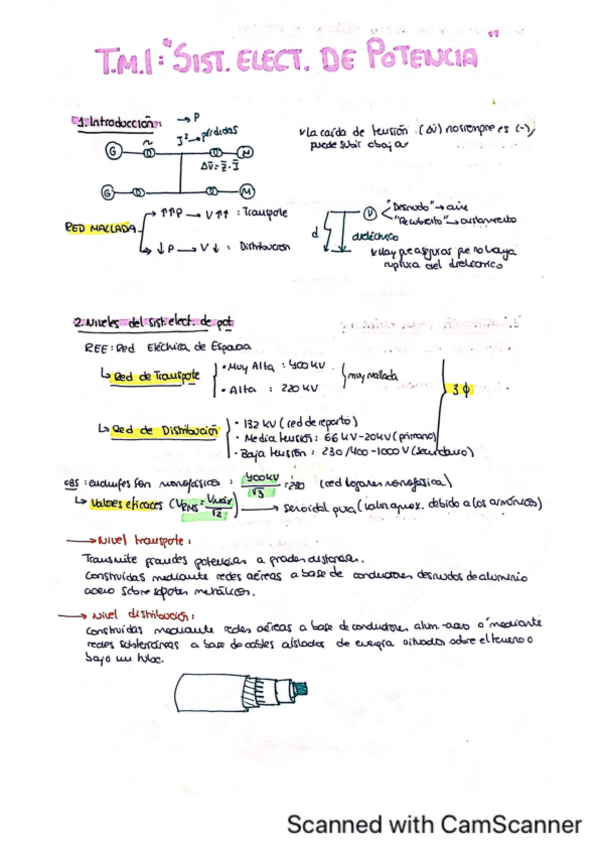 T.M.1: "SIST. ELECT. DE POTENCIA"
1. Introducción:
→ P
I² → pérdidas
G
M
ΔŪ = Z̄ · Ī
G
M
* la caída de tensión (ΔU) no siempre es (-),
puede subir o bajar
RED MALLADA
↑↑P → V↑↑ : Transporte
↓P → V↓ : Distribución
V
"Desnudo" → aire
"Recubierto" → aislamiento
d
dieléctrico
* Hay que asegurar que no haya
ruptura del dieléctrico
2. Niveles del sist. elect. de pot
REE: Red Eléctrica de España
↳ Red de Transporte
• Muy Alta : 400 kV
• Alta : 220 kV
muy mallada
3 ϕ
↳ Red de Distribución
• 132 kV (red de reparto)
• Media tensión : 66 kV - 20 kV (primario)
• Baja tensión : 230/400 - 1000 V (secundario)
OBS : enchufes son monofásicos : 400 kV / √3 = 230 (red hogares monofásica)
↳ Valores eficaces (V_RMS = Vmáx / √2) → Senoidal pura (valor aprox. debido a los armónicos)
→ Nivel transporte :
Transmite grandes potencias a grandes distancias.
Construidas mediante redes aéreas a base de conductores desnudos de aluminio
acero sobre apoyos metálicos.
→ Nivel distribución :
Construidas mediante redes aéreas a base de conductores alum.-acero o mediante
redes subterráneas a base de cables aislados de energía situados sobre el terreno o
bajo un tubo.
Scanned with CamScanner